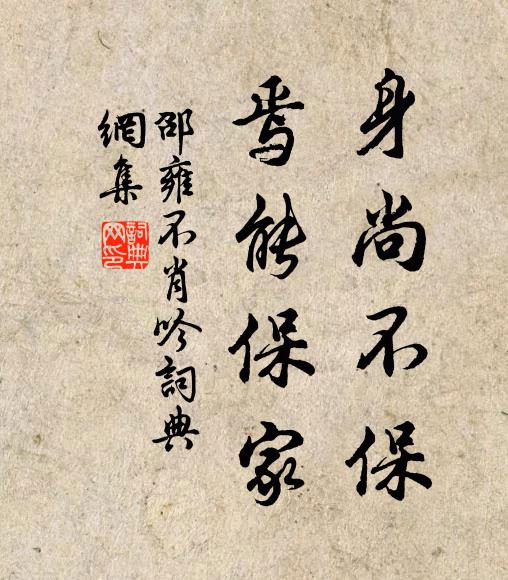 身尚不保
焉能保家
邵雍不肖吟詞典
網集
詞典
网印